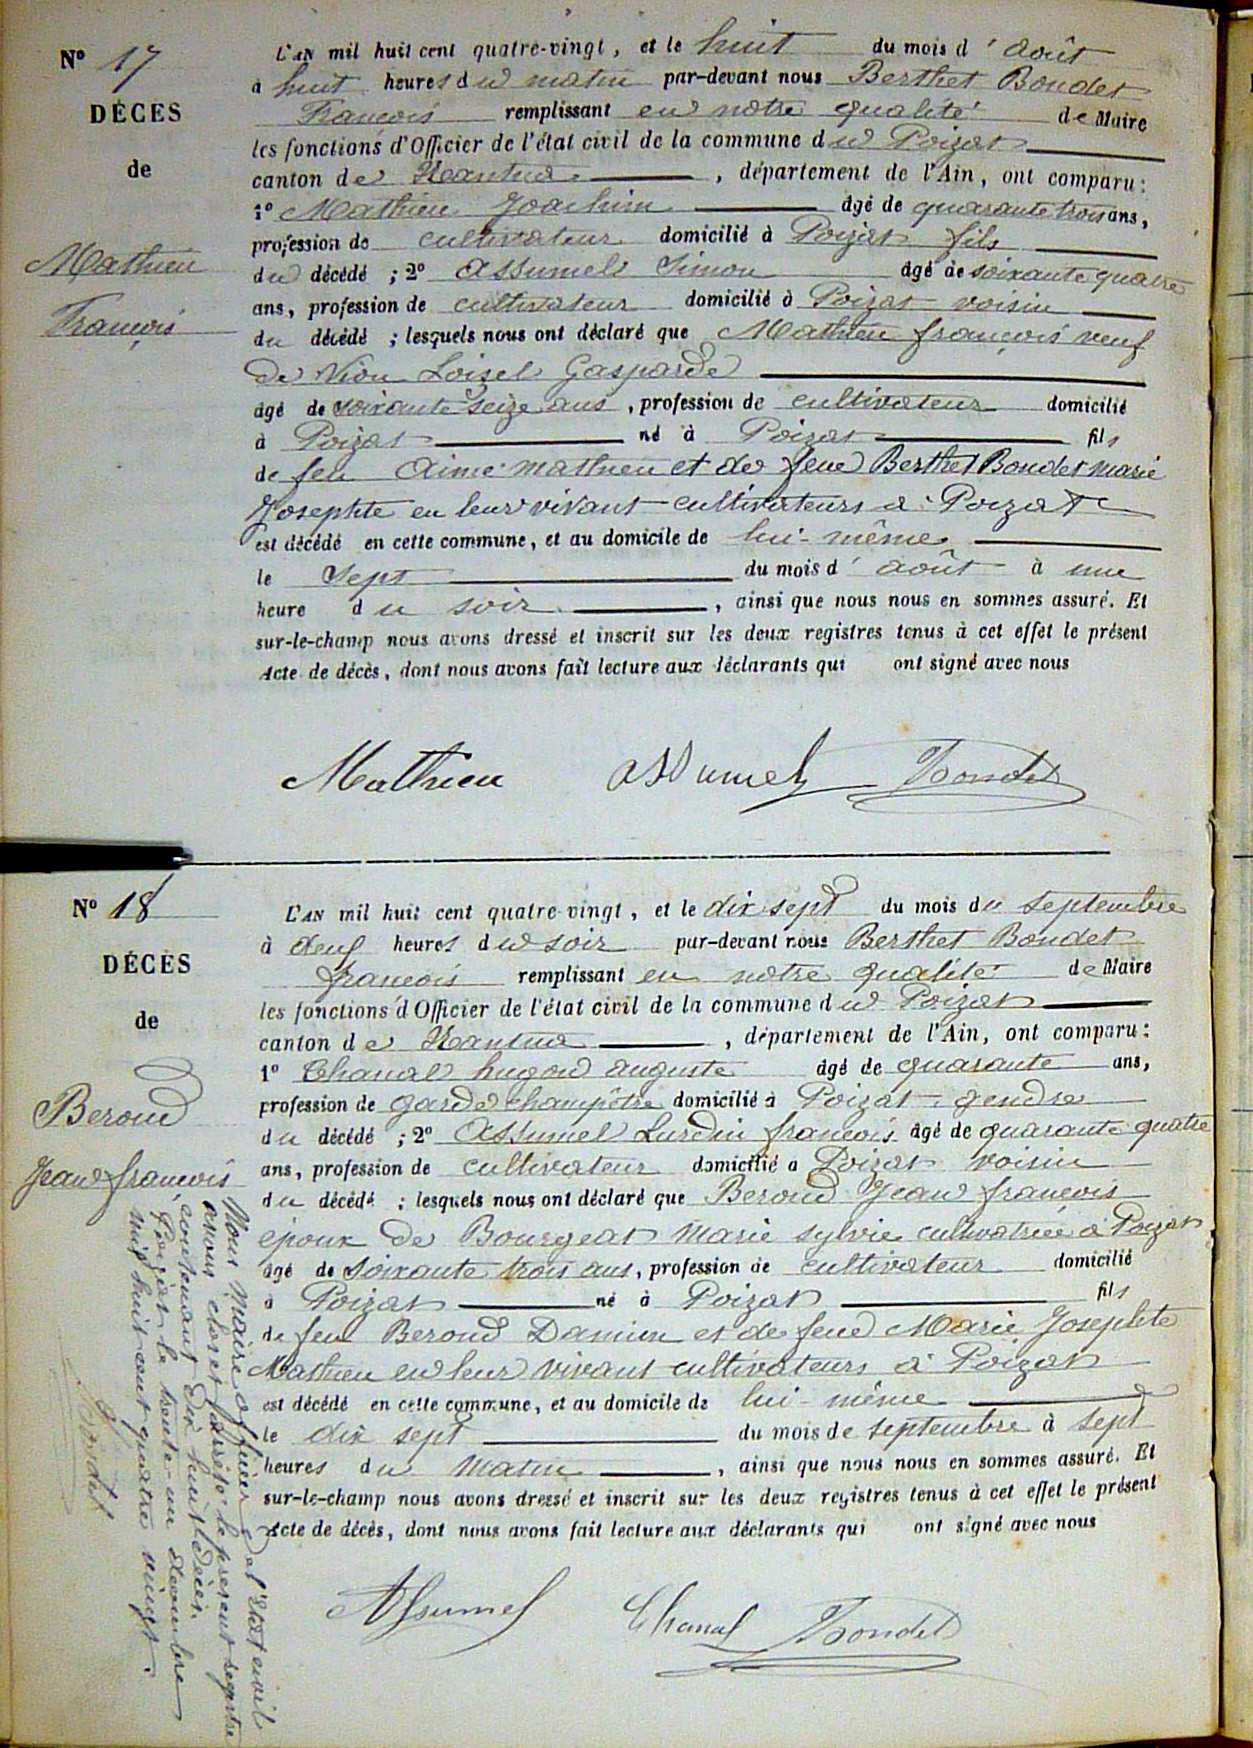 N° 17
DÉCÈS
de
Mathieu
François
L'AN mil huit cent quatre-vingt, et le huit du mois d'août
à huit heures du matin par-devant nous Berthet Bondet
François remplissant en notre qualité de Maire
les fonctions d'Officier de l'état civil de la commune du Poizat
canton de Nantua, département de l'Ain, ont comparu :
1° Mathieu Joachim âgé de quarante trois ans,
profession de cultivateur domicilié à Poizat fils
du décédé ; 2° Assumel Simon âgé de soixante quatre
ans, profession de cultivateur domicilié à Poizat voisin
du décédé ; lesquels nous ont déclaré que Mathieu françois veuf
de Vion Loisel Gasparde
âgé de soixante seize ans, profession de cultivateur domicilié
à Poizat né à Poizat fils
de feu Aimé Mathieu et de feue Berthet Bondet marie
Josephte en leur vivant cultivateurs à Poizat
est décédé en cette commune, et au domicile de lui-même
le sept du mois d'août à une
heure du soir, ainsi que nous nous en sommes assuré. Et
sur-le-champ nous avons dressé et inscrit sur les deux registres tenus à cet effet le présent
Acte de décès, dont nous avons fait lecture aux déclarants qui ont signé avec nous
Mathieu assumel Bondet
N° 18
DÉCÈS
de
Beroud
Jean françois
L'AN mil huit cent quatre-vingt, et le dix sept du mois du septembre
à deux heures du soir par-devant nous Berthet Bondet
françois remplissant en notre qualité de Maire
les fonctions d'Officier de l'état civil de la commune du Poizat
canton de Nantua, département de l'Ain, ont comparu :
1° Chanal hugon auguste âgé de quarante ans,
profession de garde champêtre domicilié à Poizat gendre
du décédé ; 2° Assumel Lurdin françois âgé de quarante quatre
ans, profession de cultivateur domicilié à Poizat voisin
du décédé ; lesquels nous ont déclaré que Beroud Jean françois
époux de Bourgeat Marie sylvie cultivatrice à Poizat
âgé de soixante trois ans, profession de cultivateur domicilié
à Poizat né à Poizat fils
de feu Beroud Damien et de feue Marie Josephte
Mathieu en leur vivant cultivateurs à Poizat
est décédé en cette commune, et au domicile de lui-même
le dix sept du mois de septembre à sept
heures du matin, ainsi que nous nous en sommes assuré. Et
sur-le-champ nous avons dressé et inscrit sur les deux registres tenus à cet effet le présent
Acte de décès, dont nous avons fait lecture aux déclarants qui ont signé avec nous
Assumel Chanal Bondet
Nous Maire officier de l'état civil
avons clos et arrêté le present registre
contenant dix huit décès.
Poizat le trente-un décembre
mil huit cent quatre vingt.
Bondet